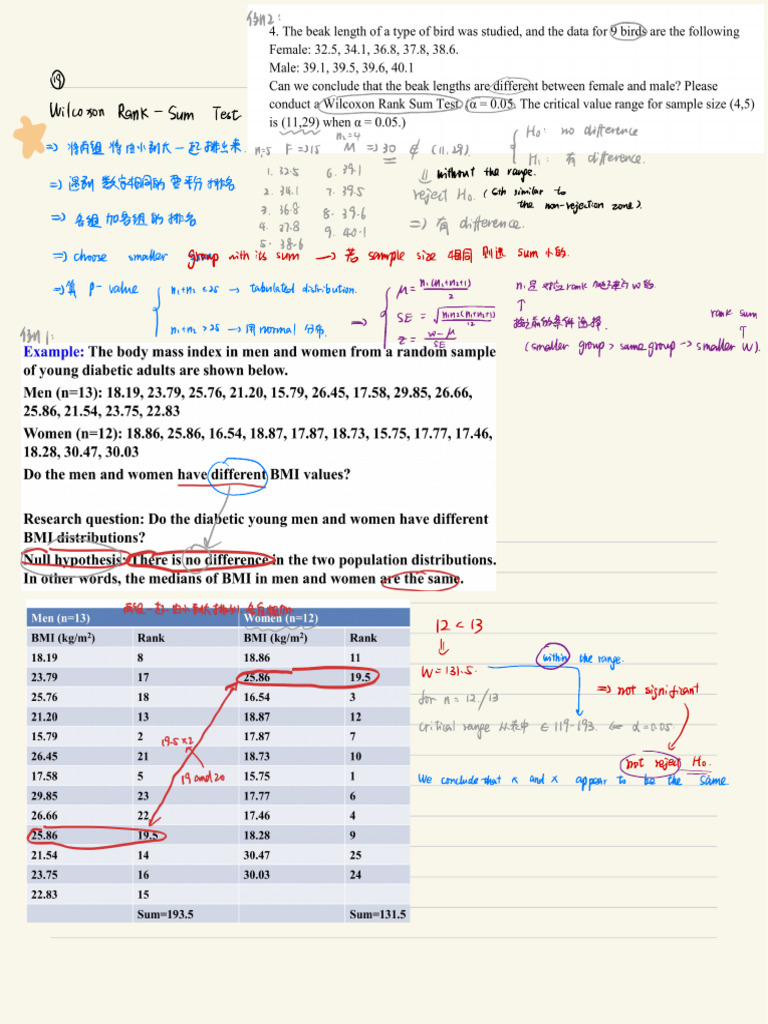 例2:
4. The beak length of a type of bird was studied, and the data for 9 birds are the following
Female: 32.5, 34.1, 36.8, 37.8, 38.6.
Male: 39.1, 39.5, 39.6, 40.1
Can we conclude that the beak lengths are different between female and male? Please
conduct a Wilcoxon Rank Sum Test (α = 0.05. The critical value range for sample size (4,5)
is (11,29) when α = 0.05.)
⑲
Wilcoxon Rank - Sum Test
=> 将两组将由小到大一起排出来.
=> 遇到数字相同的要平分排名
=> 各组加各组的排名
=> choose smaller group with its sum → 若 sample size 相同 则选 sum 小的.
=> 算 P-value
n₁+n₂ <25 → tabulated distribution.
n₁+n₂ >25 → 用 normal 分布. =>
n₁=5 F =>15
n₂=4 M =>30 ∉ (11,29).
1. 32.5 6. 39.1
2. 34.1 7. 39.5
3. 36.8 8. 39.6
4. 37.8 9. 40.1
5. 38.6
H₀: no difference
H₁: 有 difference.
without the range.
reject H₀.
the non-rejection zone).
=> 有 difference.
μ = n₁(n₁+n₂+1)/2
SE = √n₁n₂(n₁+n₂+1)/12
z = w-μ/SE
(smaller group > same group -> smaller W).
rank sum
例1:
Example: The body mass index in men and women from a random sample
of young diabetic adults are shown below.
Men (n=13): 18.19, 23.79, 25.76, 21.20, 15.79, 26.45, 17.58, 29.85, 26.66,
25.86, 21.54, 23.75, 22.83
Women (n=12): 18.86, 25.86, 16.54, 18.87, 17.87, 18.73, 15.75, 17.77, 17.46,
18.28, 30.47, 30.03
Do the men and women have different BMI values?
Research question: Do the diabetic young men and women have different
BMI distributions?
Null hypothesis: There is no difference in the two population distributions.
In other words, the medians of BMI in men and women are the same.
Men (n=13) Women (n=12)
BMI (kg/m²) Rank BMI (kg/m²) Rank
18.19 8 18.86 11
23.79 17 25.86 19.5
25.76 18 16.54 3
21.20 13 18.87 12
15.79 2 17.87 7
26.45 21 18.73 10
17.58 5 15.75 1
29.85 23 17.77 6
26.66 22 17.46 4
25.86 19.5 18.28 9
21.54 14 30.47 25
23.75 16 30.03 24
22.83 15
Sum=193.5 Sum=131.5
19.5×2
19 and 20
12 < 13
W = 131.5.
within the range.
=> not significant
for n = 12/13
critical range 从表中 ∈ 119-193. ⇐ α=0.05.
not reject H₀.
We conclude that x and x appear to be the same